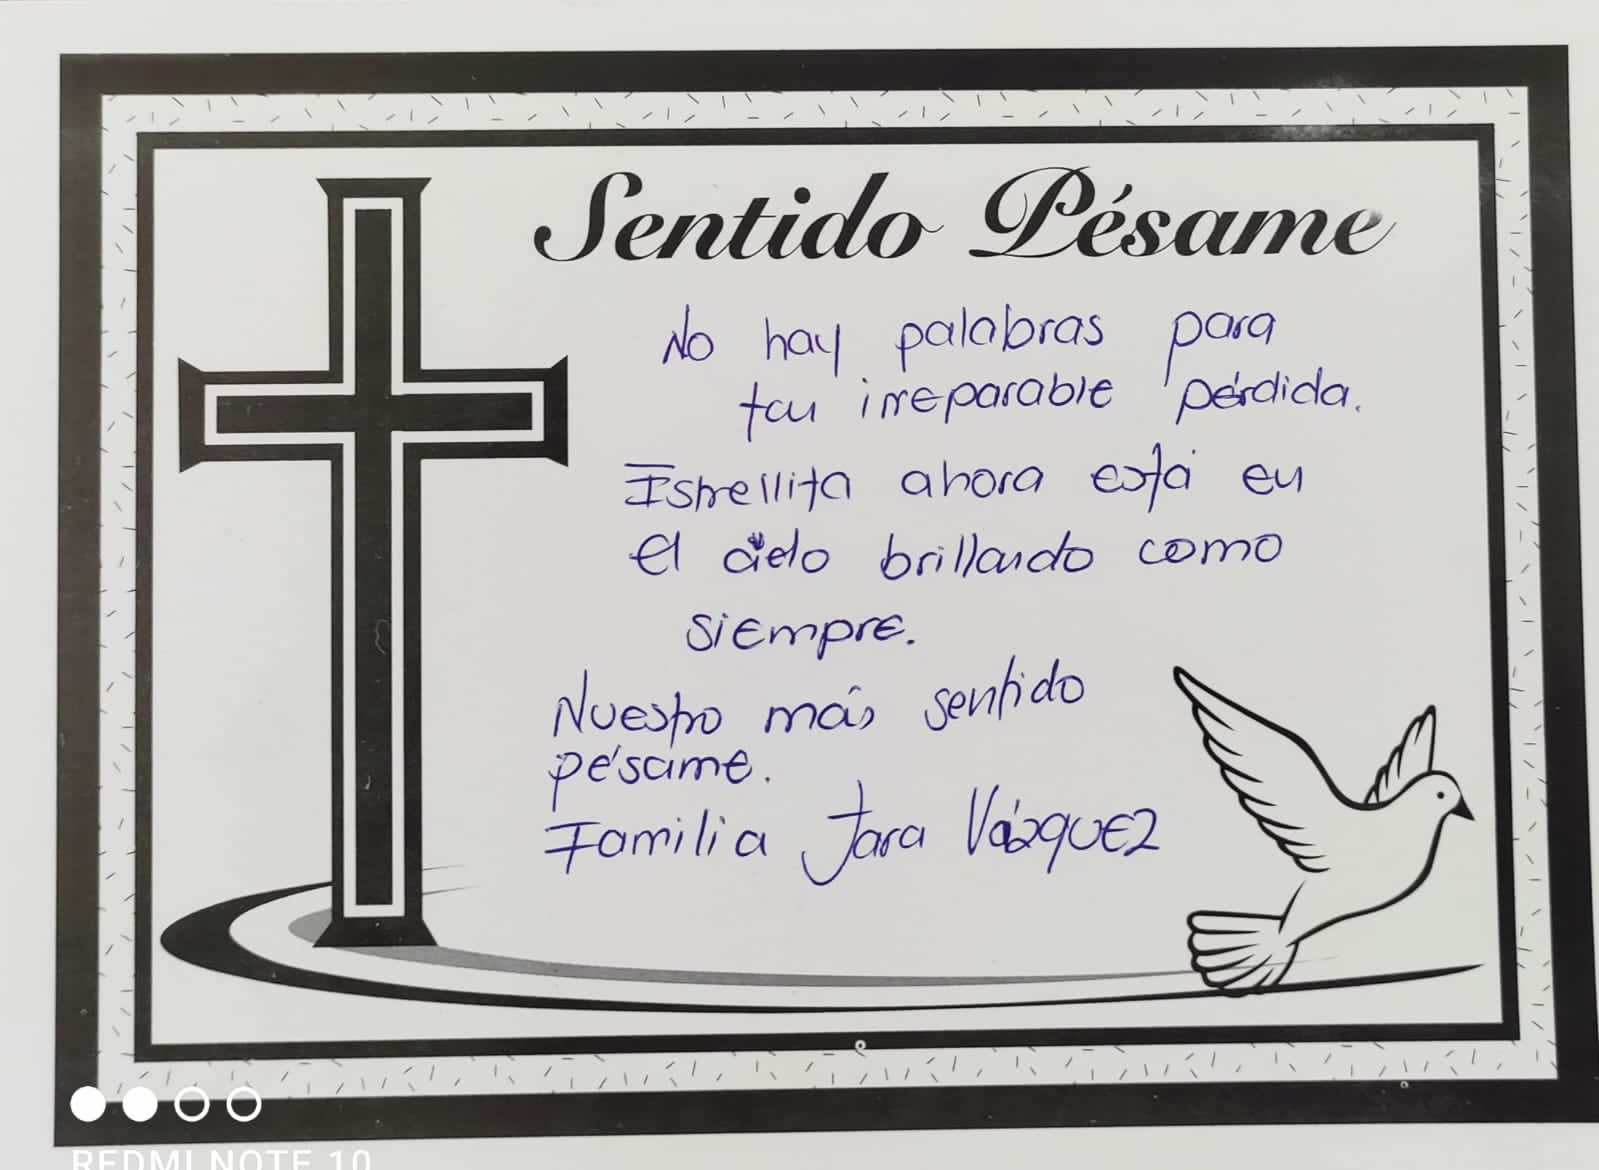 Sentido Pésame
No hay palabras para
tan irreparable pérdida.
Estrellita ahora está en
el cielo brillando como
siempre.
Nuestro más sentido
pésame.
Familia Jara Vázquez
REDMI NOTE 10